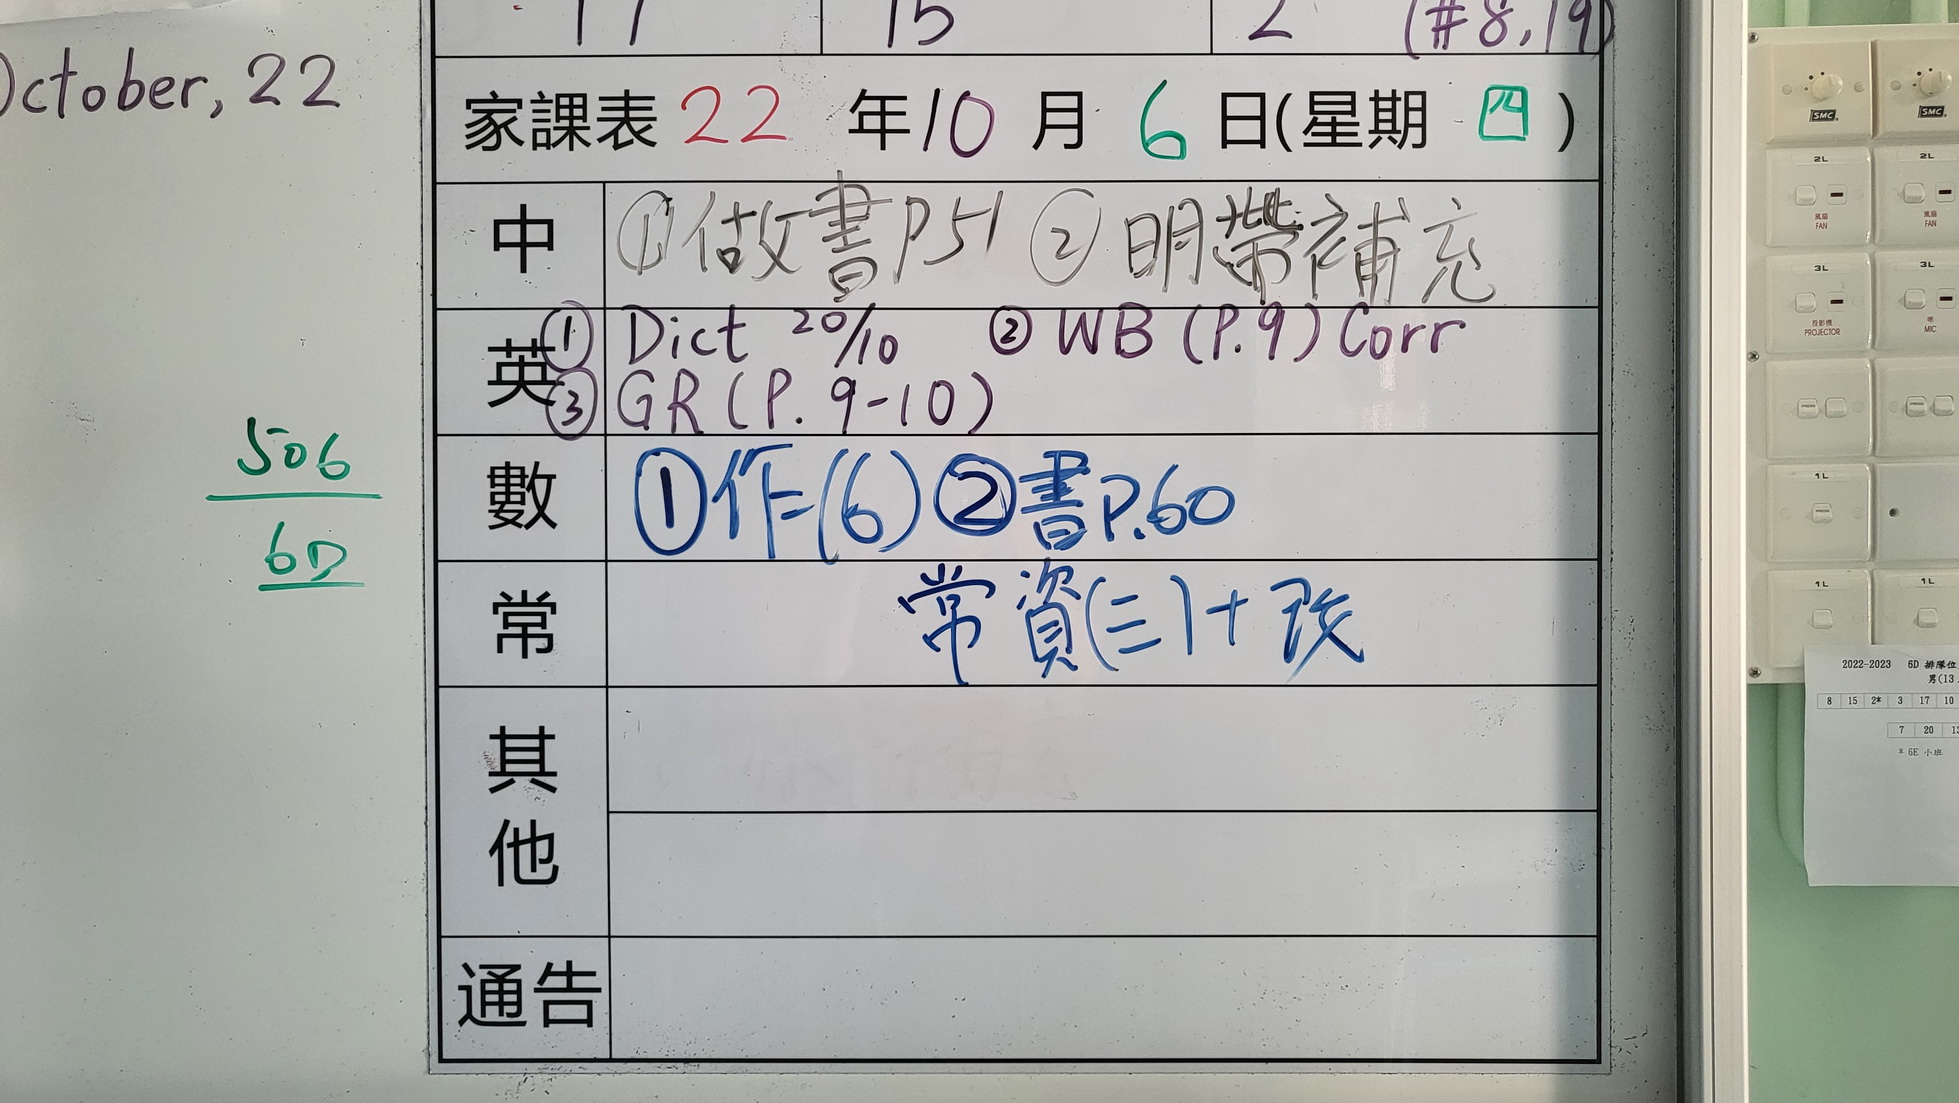 October, 22
17 15 2 (#8,19)
家課表 22 年 10 月 6 日(星期 四 )
中 ①做書P51 ②明帶補充
英 ① Dict 20/10 ② WB (P.9) Corr
③ GR (P. 9-10)
數 ①作=(6) ②書P.60
常 常資(三)+改
其他
通告
506
6D
SMC SMC
2L 2L
風扇 風扇
FAN FAN
3L 3L
投影機 咪
PROJECTOR MIC
1L
1L 1L
2022-2023 6D 排隊位
男(13
8 15 2* 3 17 10
7 20
* 6E 小班